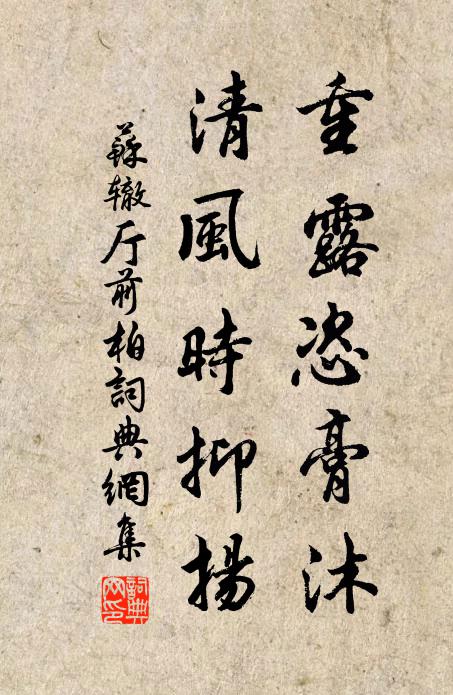 重露恣膏沐
清風時抑揚
蘇辙厅前柏詞典網集
詞典网印